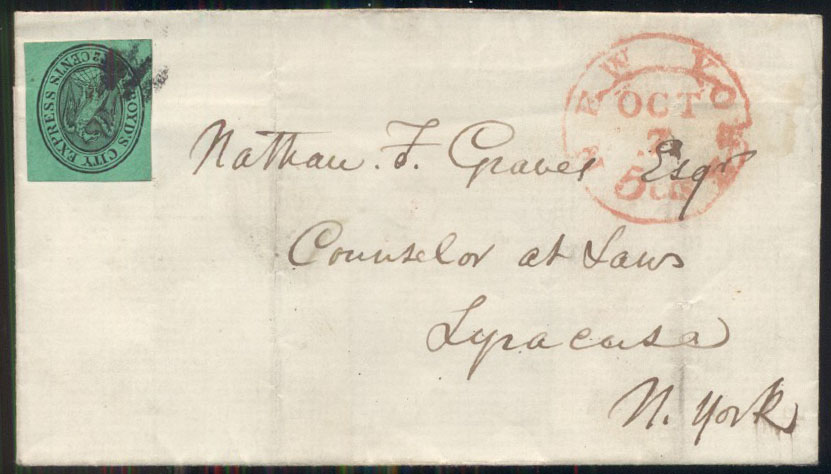 BOYD'S CITY EXPRESS
2 CENTS
NEW YORK
OCT
5 cts
Nathan. F. Graves Esqr
Counselor at Laws
Syracusa
N. York